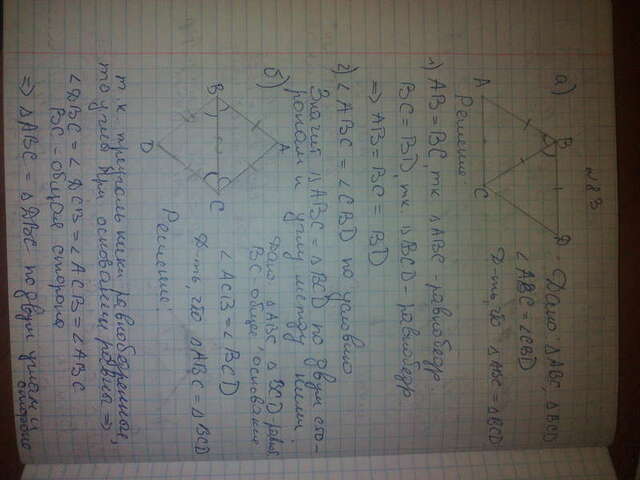 №83
а) Дано: △ABC, △BCD
∠ABC = ∠CBD
Д-ть, что △ABC = △BCD
A B C D
Решение:
1) AB = BC, тк △ABC - равнобедр
BC = BD, тк. △BCD - равнобедр
⇒ AB = BC = BD
2) ∠ABC = ∠CBD по условию
Значит △ABC = △BCD по двум сто-
ронам и углу между ними.
б) Дано △ABC △BCD равн.
BC общее основание
∠ACB = ∠BCD
Д-ть, что △ABC = △BCD
A B C D
Решение:
т.к. треугольники равнобедренные,
то углы при основании равны ⇒
∠DBC = ∠DCB = ∠ACB = ∠ABC
BC - общая сторона
⇒ △ABC = △DBC по двум углам и
стороне